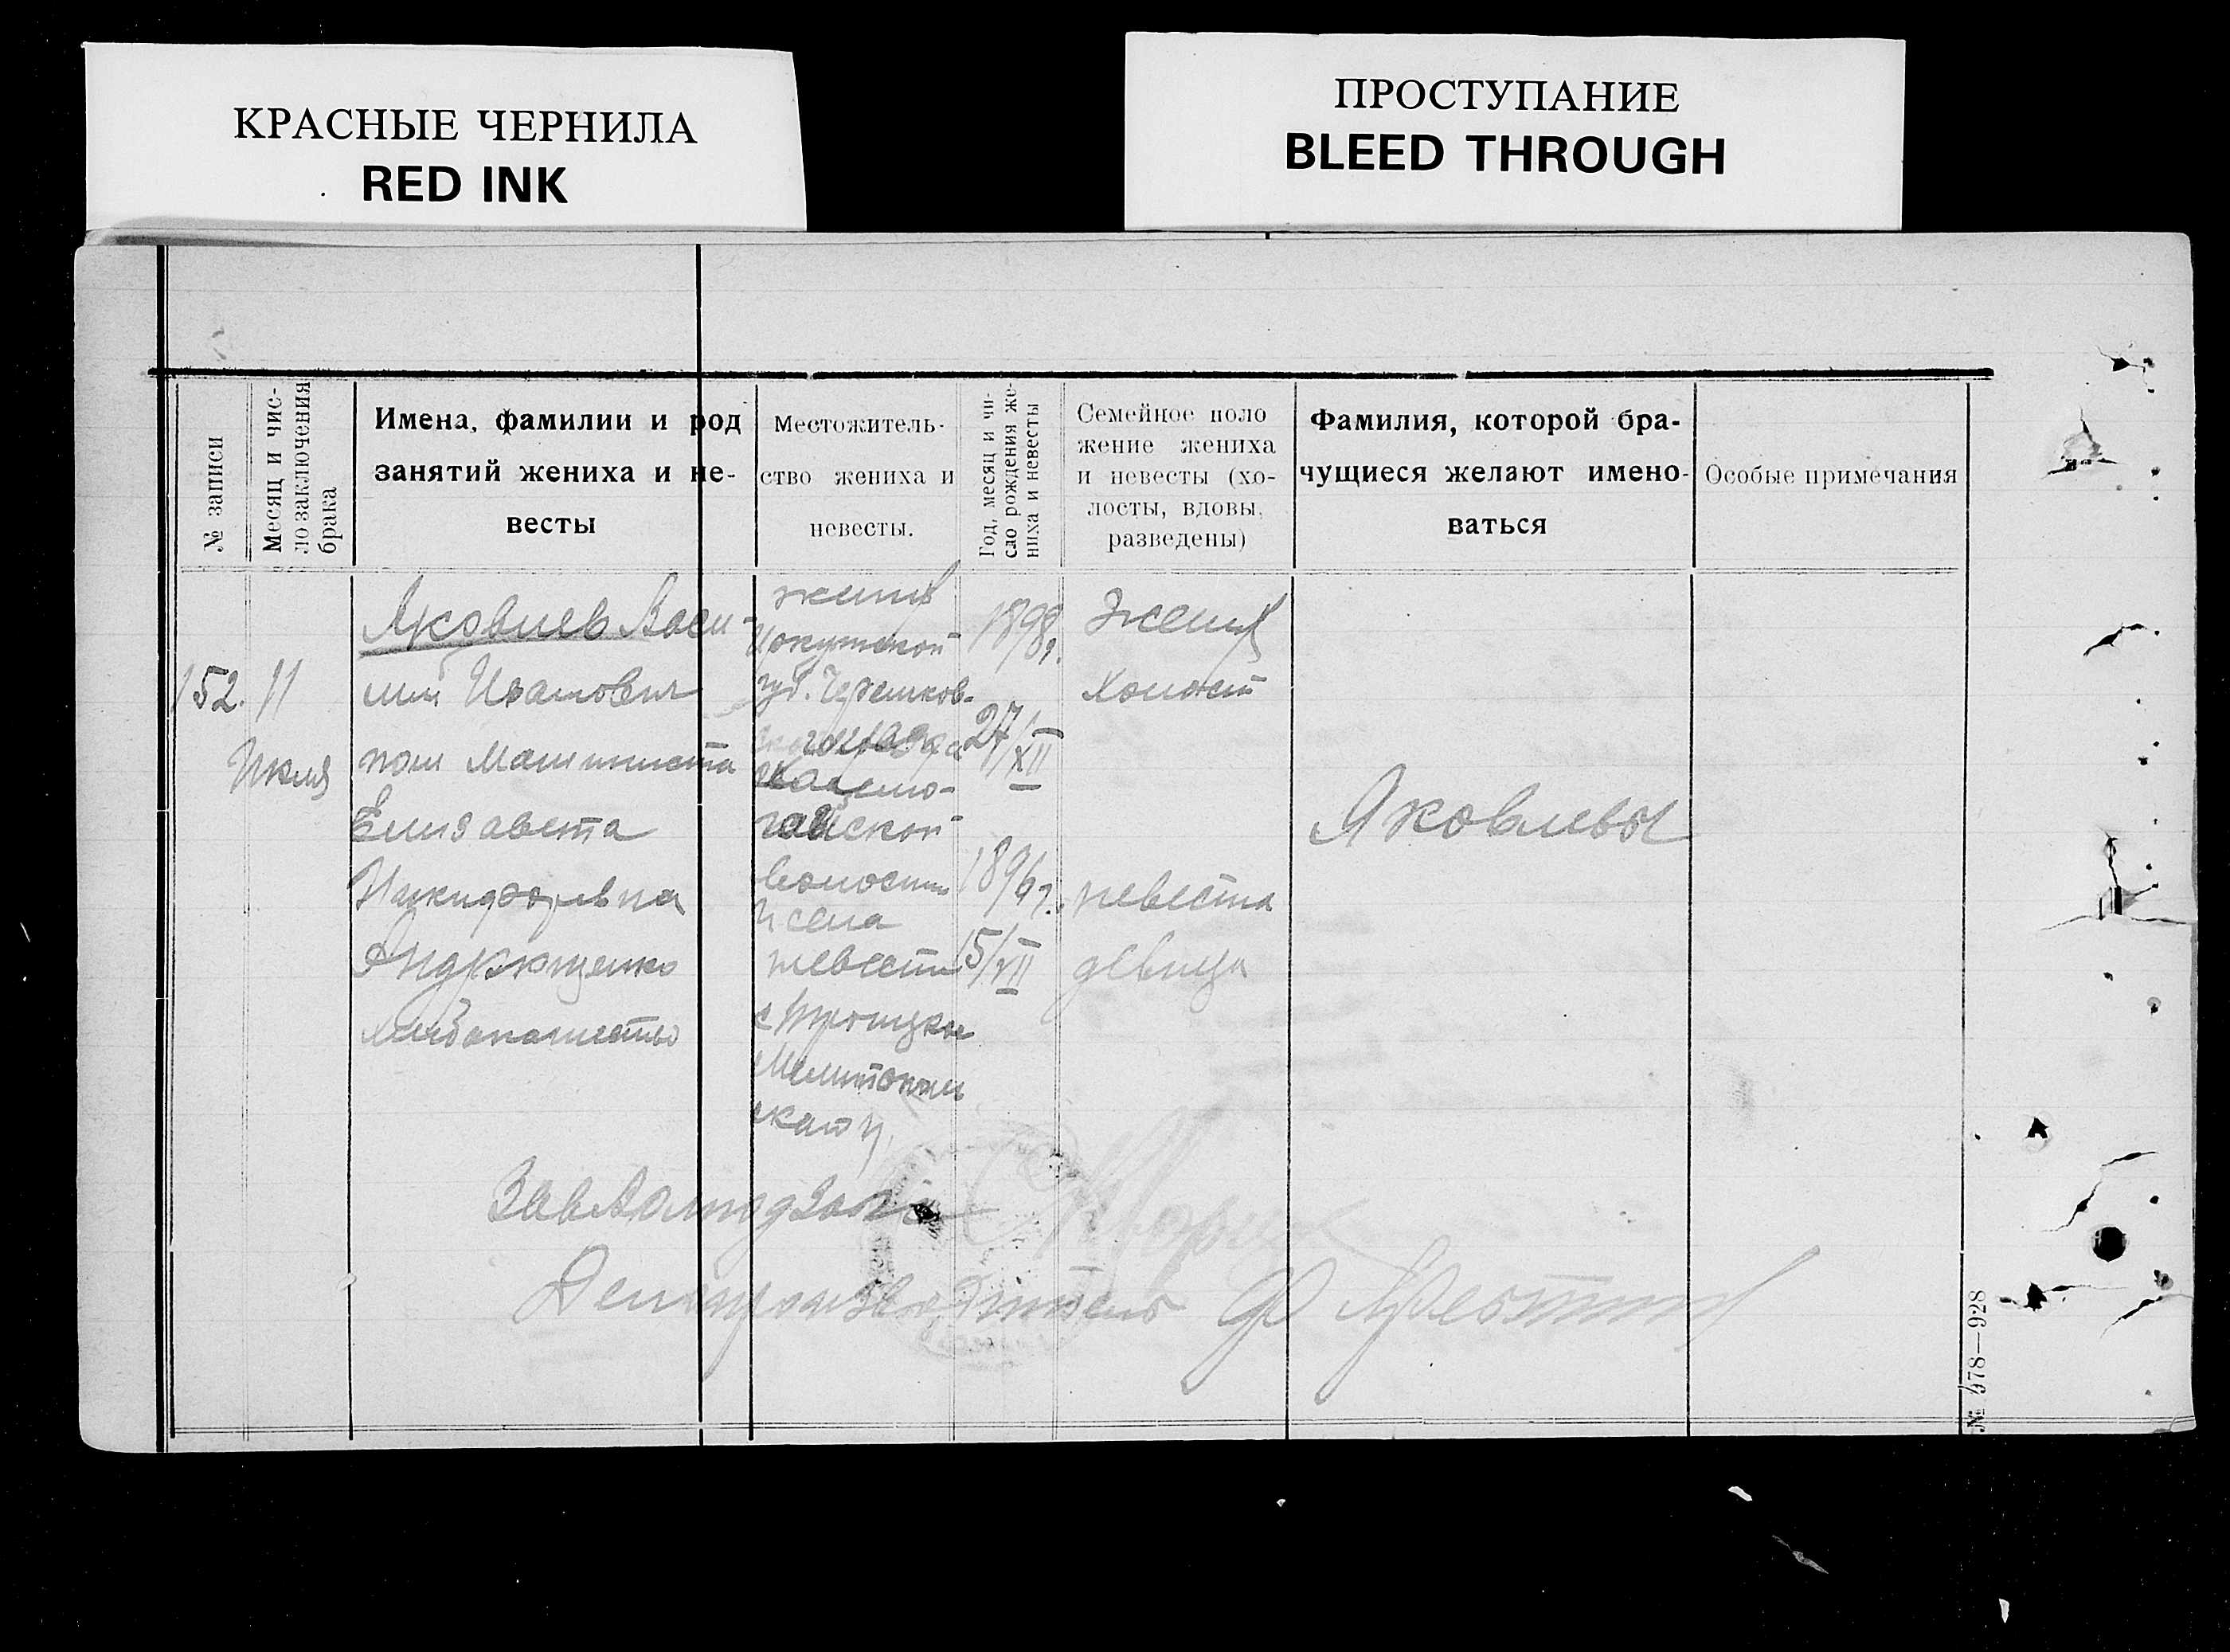 КРАСНЫЕ ЧЕРНИЛА
RED INK
ПРОСТУПАНИЕ
BLEED THROUGH
№ записи
Месяц и чис-
ло заключения
брака
Имена, фамилии и род
занятий жениха и не-
весты
Местожитель-
ство жениха и
невесты.
Год, месяц и чи-
сло рождения же-
ниха и невесты
Семейное поло
жение жениха
и невесты (хо-
лосты, вдовы,
разведены)
Фамилия, которой бра-
чущиеся желают имено-
ваться
Особые примечания
152.
11
Июля
Яковлев Васи-
лий Иванович
пом Машиниста
Елизавета
Никифоровна
Андрющенко
хлебопашество
жених
Иркутской
губ.
волости
и села
невеста
с Троицкое
Мелитополь
ского у.
1898г.
27/XII
1896г.
15/VII
Жених
Холост
невеста
девица
Яковлевы
Делопроизводитель
№ 978—928